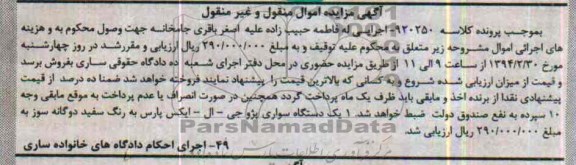 آگهی مزایده اموال منقول و غیر منقول
بموجب پرونده کلاسه ۹۲۰۲۵۰ اجرایی له فاطمه حبیب زاده علیه اصغر باقری جامخانه جهت وصول محکوم به و هزینه
های اجرائی اموال مشروحه زیر متعلق به محکوم علیه توقیف و به مبلغ ۲۹۰/۰۰۰/۰۰۰ ریال ارزیابی و مقررشد در روز چهارشنبه
مورخ ۱۳۹۴/۲/۳۰ از ساعت ۹ الی ۱۱ از طریق مزایده حضوری در محل دفتر اجرای شعبه ده دادگاه حقوقی ساری بفروش برسد
و قیمت از میزان ارزیابی شده شروع و به کسانی که بالاترین قیمت را پیشنهاد نمایند فروخته خواهد شد ضمنا ده درصد از قیمت
پیشنهادی نقدا از برنده اخذ و مابقی باید ظرف یک ماه پرداخت گردد همچنین در صورت انصراف یا عدم پرداخت به موقع مابقی وجه
۱۰ سپرده به نفع صندوق دولت ضبط خواهد شد. ۱ یک دستگاه سواری پژو جی - ال - ایکس پارس به رنگ سفید دوگانه سوز به
مبلغ ۲۹۰/۰۰۰/۰۰۰ ریال ارزیابی شد.
۴۹- اجرای احکام دادگاه های خانواده ساری
ParsNamadData